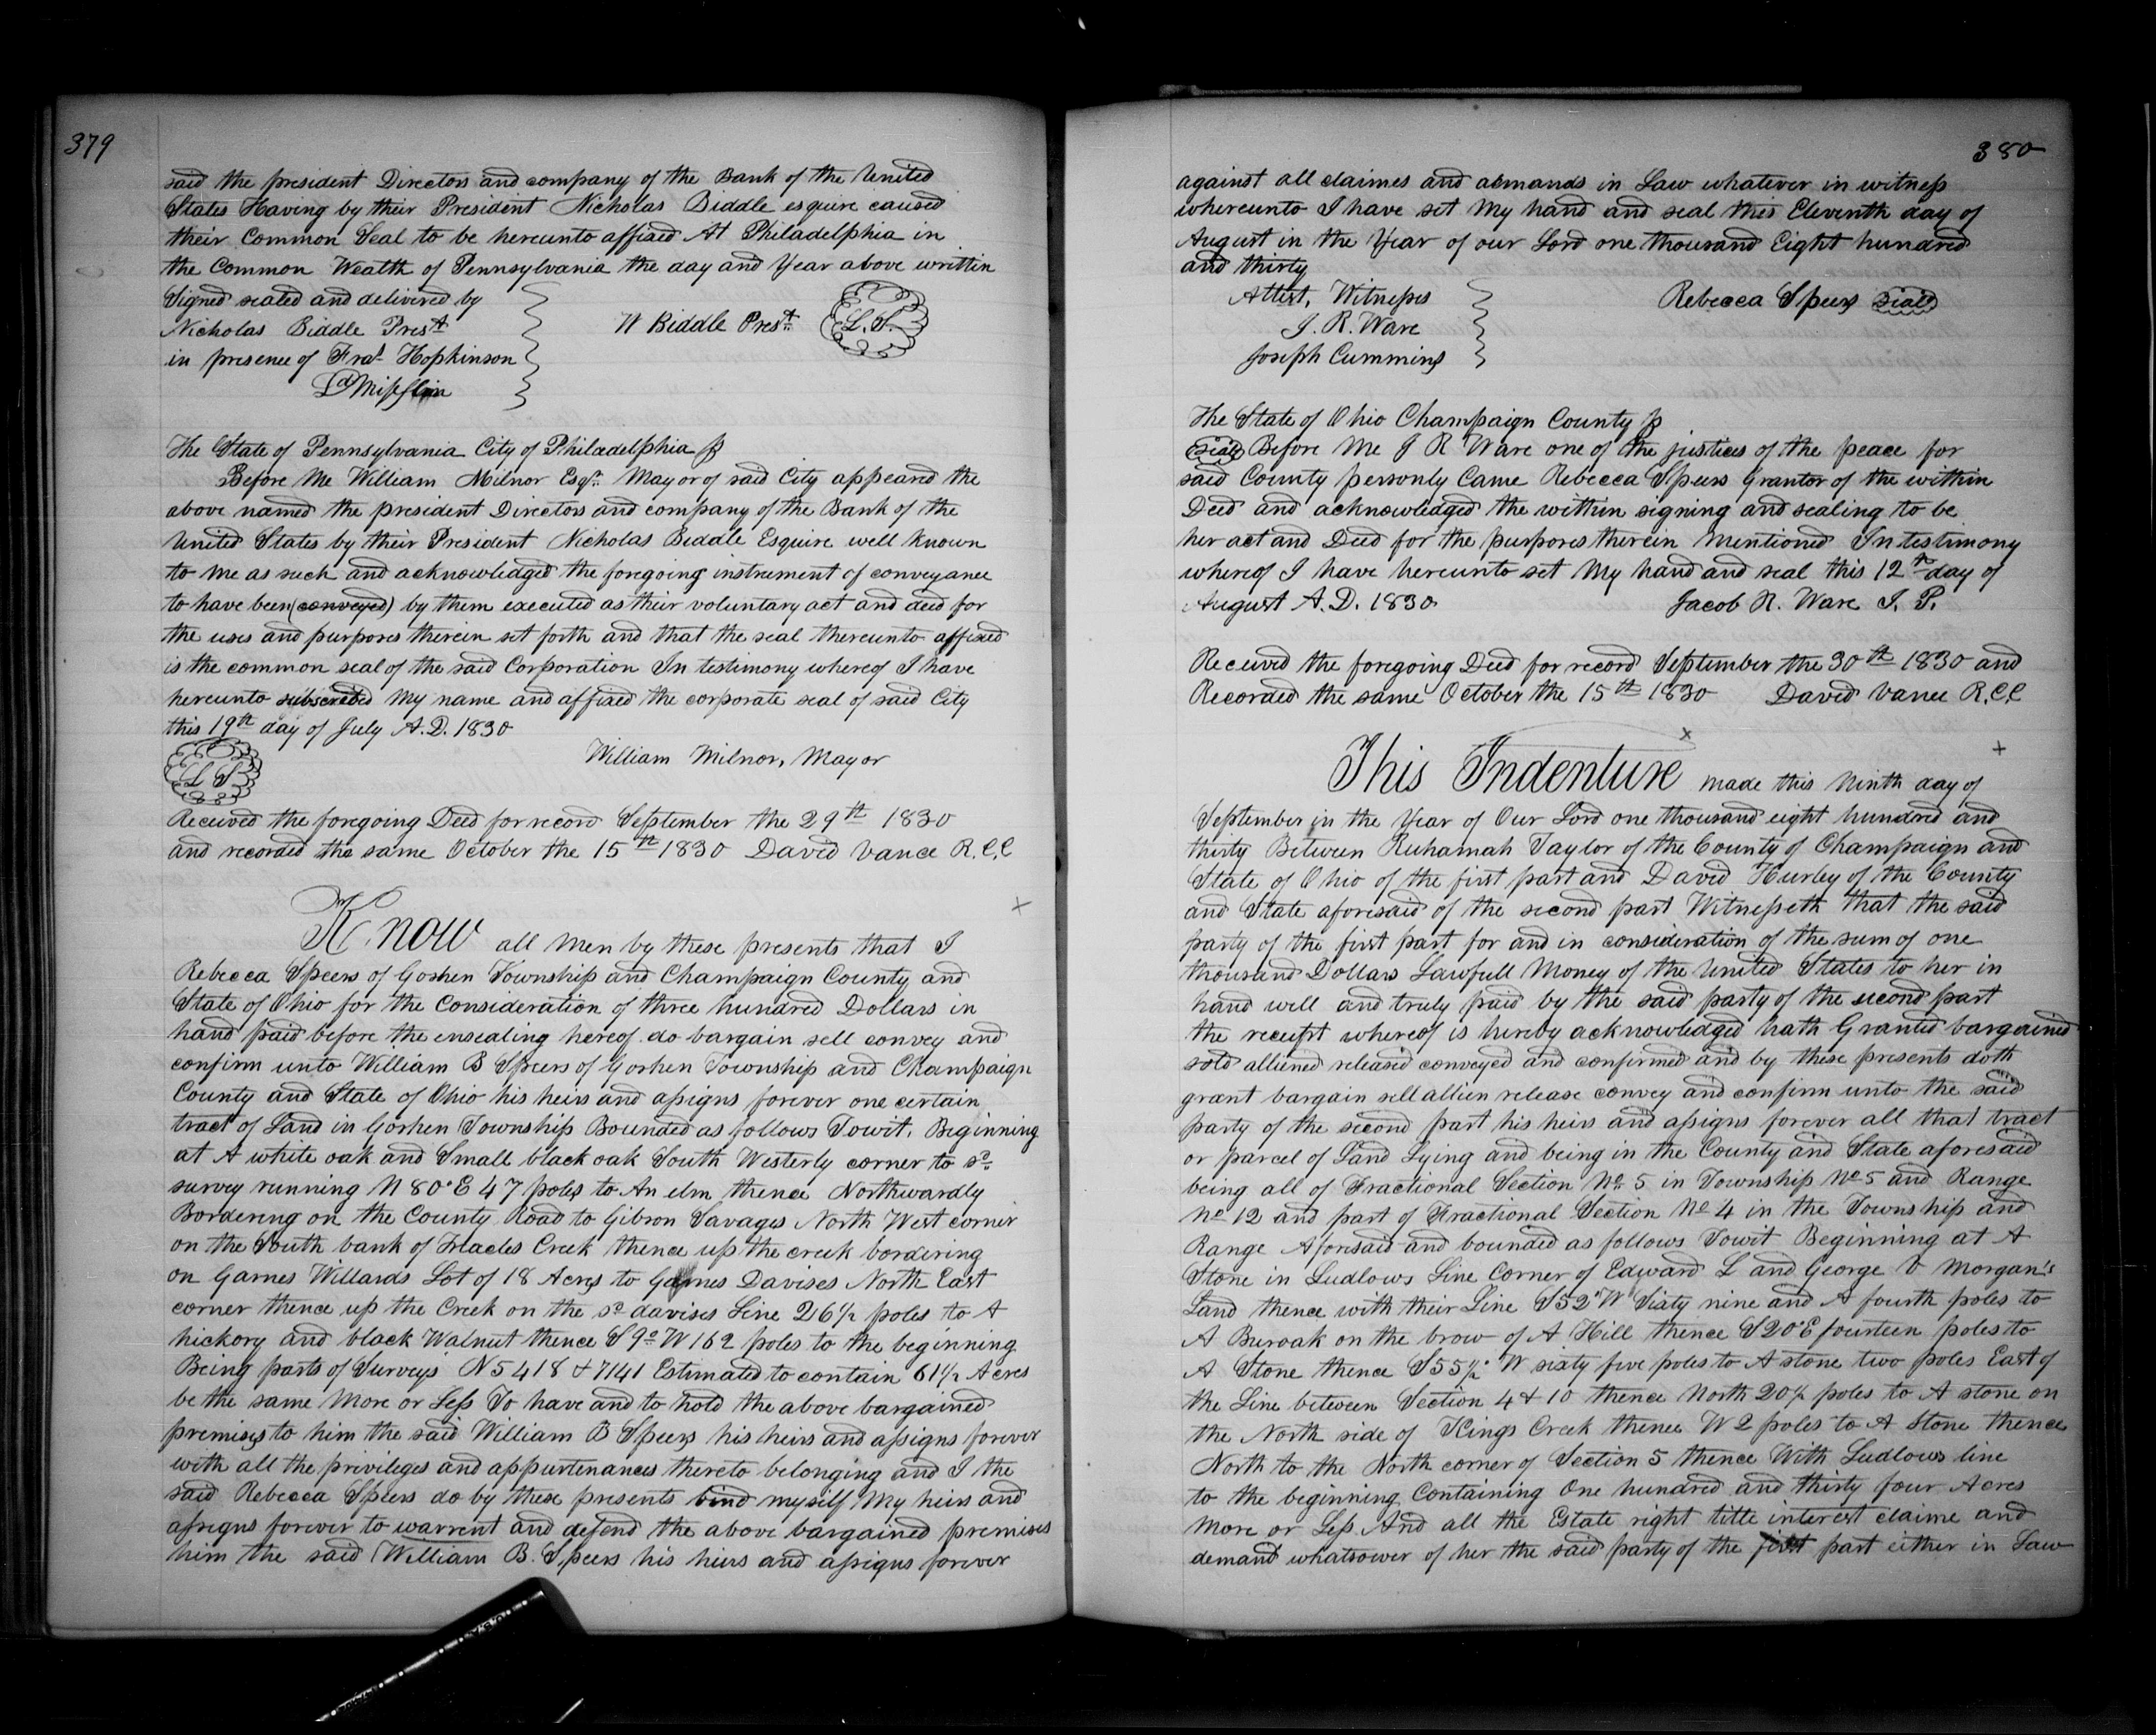 379
said the president Directors and company of the Bank of the United
States Having by their President Nicholas Biddle esquire caused
their Common Seal to be hereunto affixed At Philadelphia in
the Common Wealth of Pennsylvania the day and Year above writtin
Signed sealed and delivered by
Nicholas Biddle Prest
in presence of Fras Hopkinson
N Biddle Prest L.S.
The State of Pennsylvania City of Philadelphia ss
Before Me William Milnor Esqr. Mayor of said City appeared the
above named the president Directors and company of the Bank of the
United States by their President Nicholas Biddle Esquire well known
to me as such and acknowledged the foregoing instrument of conveyance
to have been (conveyed) by them executed as their voluntary act and deed for
the uses and purposes therein set forth and that the seal thereunto affixed
is the common seal of the said Corporation In testimony whereof I have
hereunto subscribed My name and affixed the corporate seal of said City
this 19th day of July A.D. 1830
William Milnor, Mayor
L S
Received the foregoing Deed for record September the 29th 1830
and recorded the same October the 15th 1830 David Vance R.C.C
Know all Men by these presents that I
Rebecca Speers of Goshen Township and Champaign County and
State of Ohio for the Consideration of three hundred Dollars in
hand paid before the ensealing hereof do bargain sell convey and
confirm unto William B Speers of Goshen Township and Champaign
County and State of Ohio his heirs and assigns forever one certain
tract of Land in Goshen Township Bounded as follows Towit, Beginning
at A white oak and Small black oak South Westerly corner to sd
survey running N 80° E 47 poles to An elm thence Northwardly
Bordering on the County Road to Gibson Savages North West corner
on the South bank of Creek thence up the creek bordering
on James Willards Lot of 18 Acres to James Davises North East
corner thence up the Creek on the sd davises Line 26 1/2 poles to A
hickory and black Walnut thence S 9° W 162 poles to the beginning
Being parts of Surveys N 5418 & 7141 Estimated to contain 61 1/2 Acres
be the same More or Less To have and to hold the above bargained
premises to him the said William B Speers his heirs and assigns forever
with all the privileges and appurtenances thereto belonging and I the
said Rebecca Speers do by these presents bind myself My heirs and
assigns forever to warrent and defend the above bargained premises
him the said William B. Speers his heirs and assigns forever
380
against all claimes and demands in Law whatever in witness
whereunto I have set My hand and seal this Eleventh day of
August in the Year of our Lord one thousand Eight hundred
and thirty
Attest, Witnesses
J. R. Ware
Joseph Cummins
Rebecca Speers Seal
The State of Ohio Champaign County ss
Seal Before Me J R Ware one of the justices of the peace for
said County personly Came Rebecca Speers Grantor of the within
Deed and acknowledged the within signing and sealing to be
her act and Deed for the purposes therein Mentioned In testimony
whereof I have hereunto set My hand and seal this 12th day of
August A.D. 1830 Jacob R. Ware J. P.
Received the foregoing Deed for record September the 30th 1830 and
Recorded the same October the 15th 1830 David Vance R.C.C
This Indenture made this Ninth day of
September in the Year of Our Lord one thousand eight hundred and
thirty Between Ruhamah Taylor of the County of Champaign and
State of Ohio of the first part and David Hurley of the County
and State aforesaid of the second part Witnesseth that the said
party of the first part for and in consideration of the sum of one
thousand Dollars Lawfull Money of the United States to her in
hand well and truly paid by the said party of the second part
the receipt whereof is hereby acknowledged hath Granted bargained
sold alliened released conveyed and confirmed and by these presents doth
grant bargain sell allien release convey and confirm unto the said
party of the second part his heirs and assigns forever all that tract
or parcel of Land Lying and being in the County and State aforesaid
being all of Fractional Section No 5 in Township No 5 and Range
No 12 and part of Fractional Section No 4 in the Township and
Range Aforesaid and bounded as follows Towit Beginning at A
Stone in Ludlows Line Corner of Edward L and George D Morgan's
Land thence with their Line S 52° W Sixty nine and A fourth poles to
A Buroak on the brow of A Hill thence S 20° E fourteen poles to
A Stone thence S 55 1/2° W sixty five poles to A stone two poles East of
the Line between Section 4 & 10 thence North 20 1/2 poles to A stone on
the North side of Kings Creek thence W 2 poles to A Stone thence
North to the North corner of Section 5 thence With Ludlows line
to the beginning Containing One hundred and thirty four Acres
More or Less And all the Estate right title interest claime and
demand whatsoever of her the said party of the first part either in Law